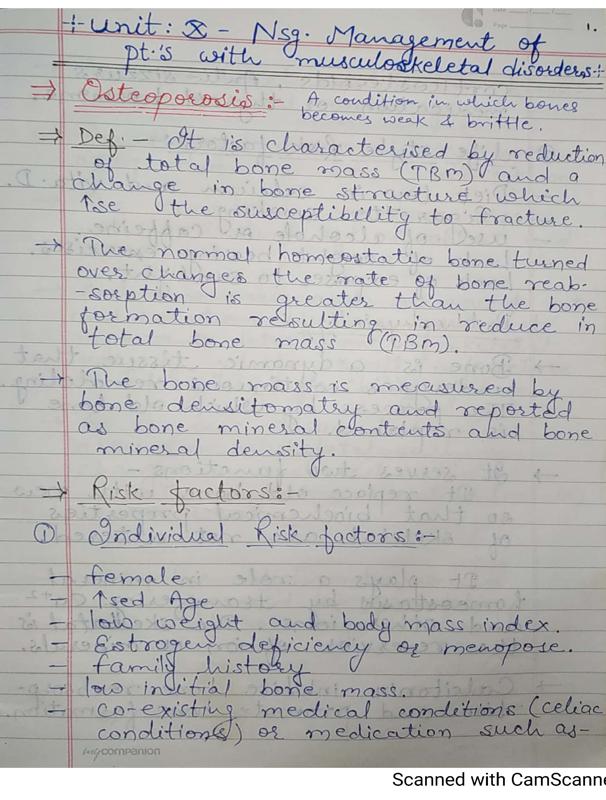 1.
+ Unit: X - Nsg. Management of
pt:'s with musculoskeletal disorders:+
⇒ Osteoporosis:- A condition in which bones
becomes weak & brittle.
⇒ Def:- It is characterised by reduction
of total bone mass (TBM) and a
change in bone structure which
↑se the susceptibility to fracture.
→ The normal homeostatic bone turned
over changes the rate of bone reab-
-sorption is greater than the bone
formation resulting in reduce in
total bone mass (TBM).
→ The bone mass is measured by
bone densitomatry and reported
as bone mineral contents and bone
mineral density.
⇒ Risk factors:-
① Individual Risk factors:-
- female
- ↑sed Age
- low weight and body mass index.
- Estrogen deficiency or menopose.
- family history
- low initial bone mass.
- co-existing medical conditions (celiac
conditions) or medication such as-
mycompanion
Scanned with CamScanne